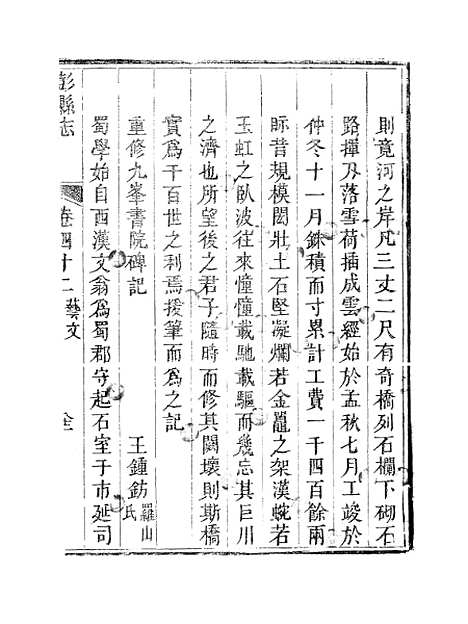 則竟河之岸凡三丈二尺有奇橋列石欄下砌石
路揮刃落雪荷插成雲經始於孟秋七月工竣於
仲冬十一月銖積而寸累計工費一千四百餘兩
昔規模閎壯土石堅凝爛若金鼇之架漢蜿若
玉虹之臥波往來憧憧載馳載驅而幾忘其巨川
之濟也所望後之君子隨時而修其闕壞則斯橋
實爲千百世之利焉援筆而爲之記
重修九峯書院碑記
王鍾鈁羅山氏
蜀學始自西漢文翁爲蜀郡守起石室于市延司
彭縣志
卷四十二藝文